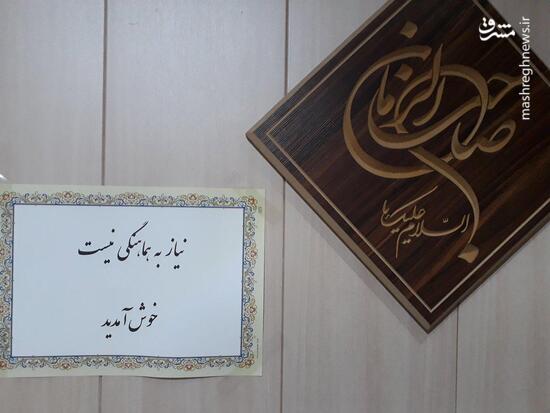 مشرق
mashreghnews.ir
السلام علیک یا
صاحب الزمان
نیاز به هماهنگی نیست
خوش آمدید